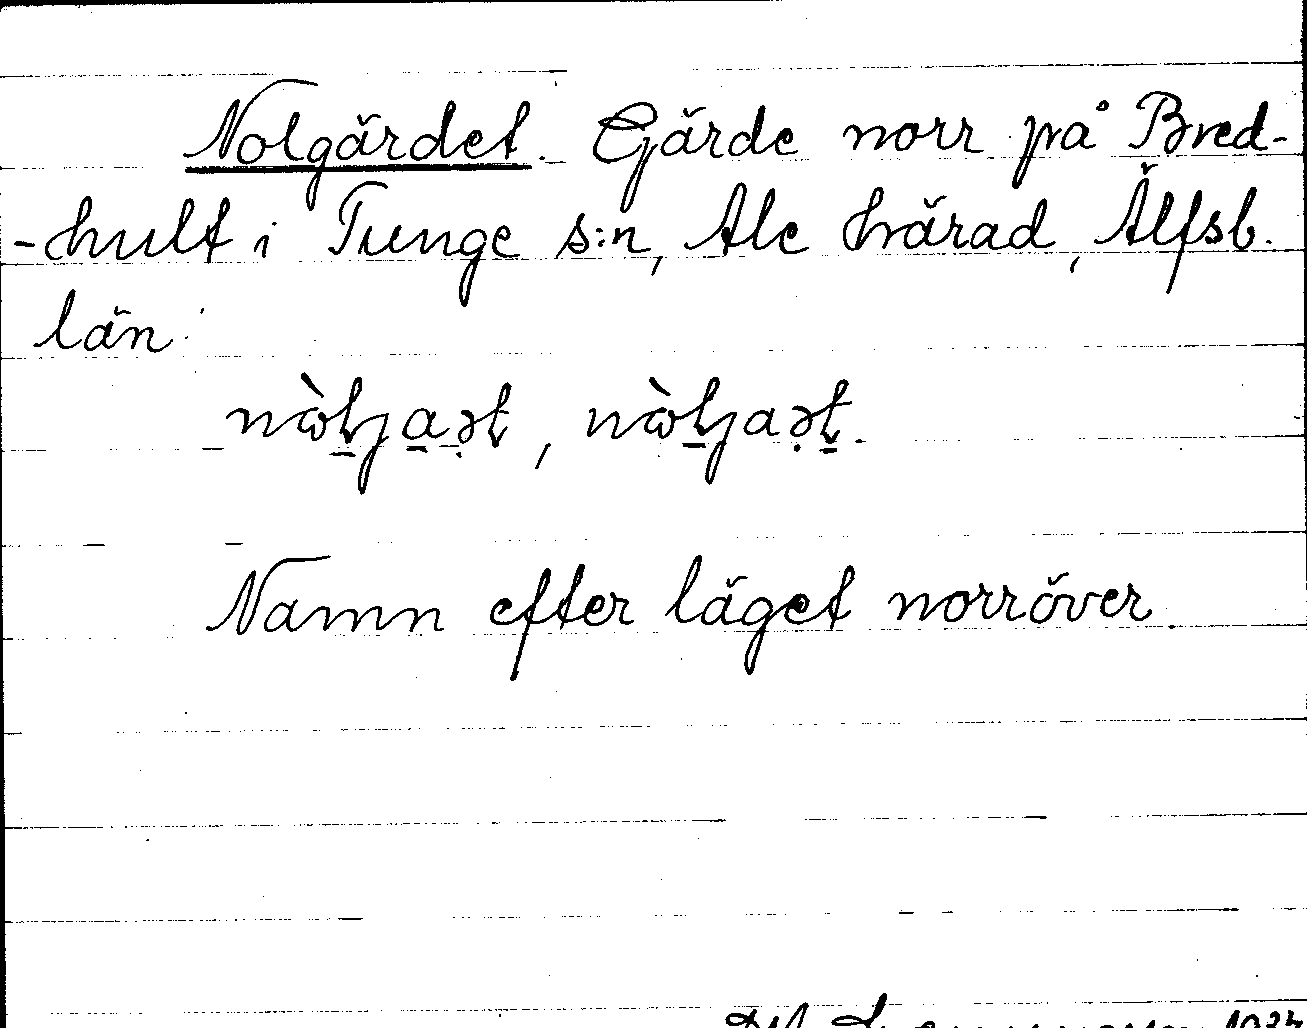 Nolgärdet. Gärde norr på Bred-
-hult i Tunge s:n, Ale härad, Älfsb.
län.
Namn efter läget norröver.